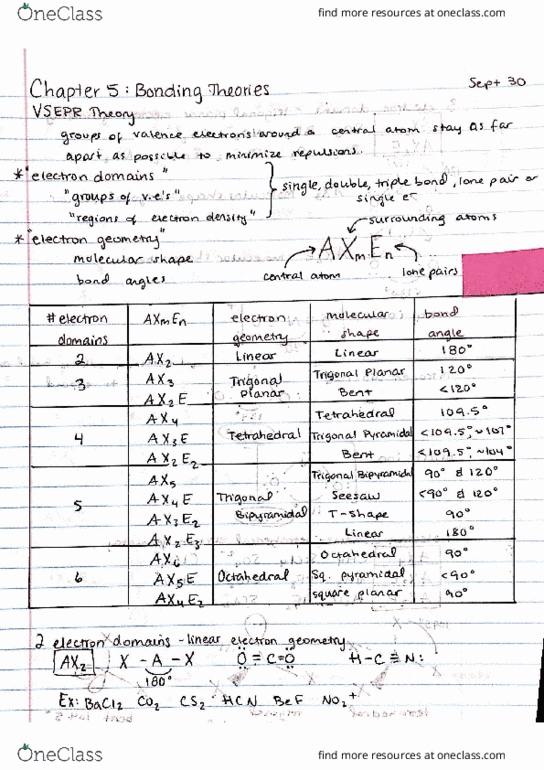 OneClass
find more resources at oneclass.com
Chapter 5: Bonding Theories
Sept 30
VSEPR Theory
groups of valence electrons around a central atom stay as far
apart as possible to minimize repulsions.
* "electron domains"
"groups of v.e's"
"regions of electron density"
single, double, triple bond, lone pair or
single e⁻
* "electron geometry"
molecular shape
bond angles
surrounding atoms
AXmEn
central atom
lone pairs
# electron domains | AXmEn | electron geometry | molecular shape | bond angle
2 | AX2 | Linear | Linear | 180°
3 | AX3 | Trigonal Planar | Trigonal Planar | 120°
AX2E | Bent | <120°
4 | AX4 | Tetrahedral | Tetrahedral | 109.5°
AX3E | Trigonal Pyramidal | <109.5°, ~107°
AX2E2 | Bent | <109.5°, ~104°
5 | AX5 | Trigonal Bipyramidal | Trigonal Bipyramidal | 90° & 120°
AX4E | Seesaw | <90° & 120°
AX3E2 | T-Shape | 90°
AX2E3 | Linear | 180°
6 | AX6 | Octahedral | Octahedral | 90°
AX5E | Sq. pyramidal | <90°
AX4E2 | square planar | 90°
2 electron domains - linear electron geometry
AX2 X - A - X O = C = O H - C ≡ N:
180°
Ex: BaCl2 CO2 CS2 HCN BeF NO2+
OneClass
find more resources at oneclass.com